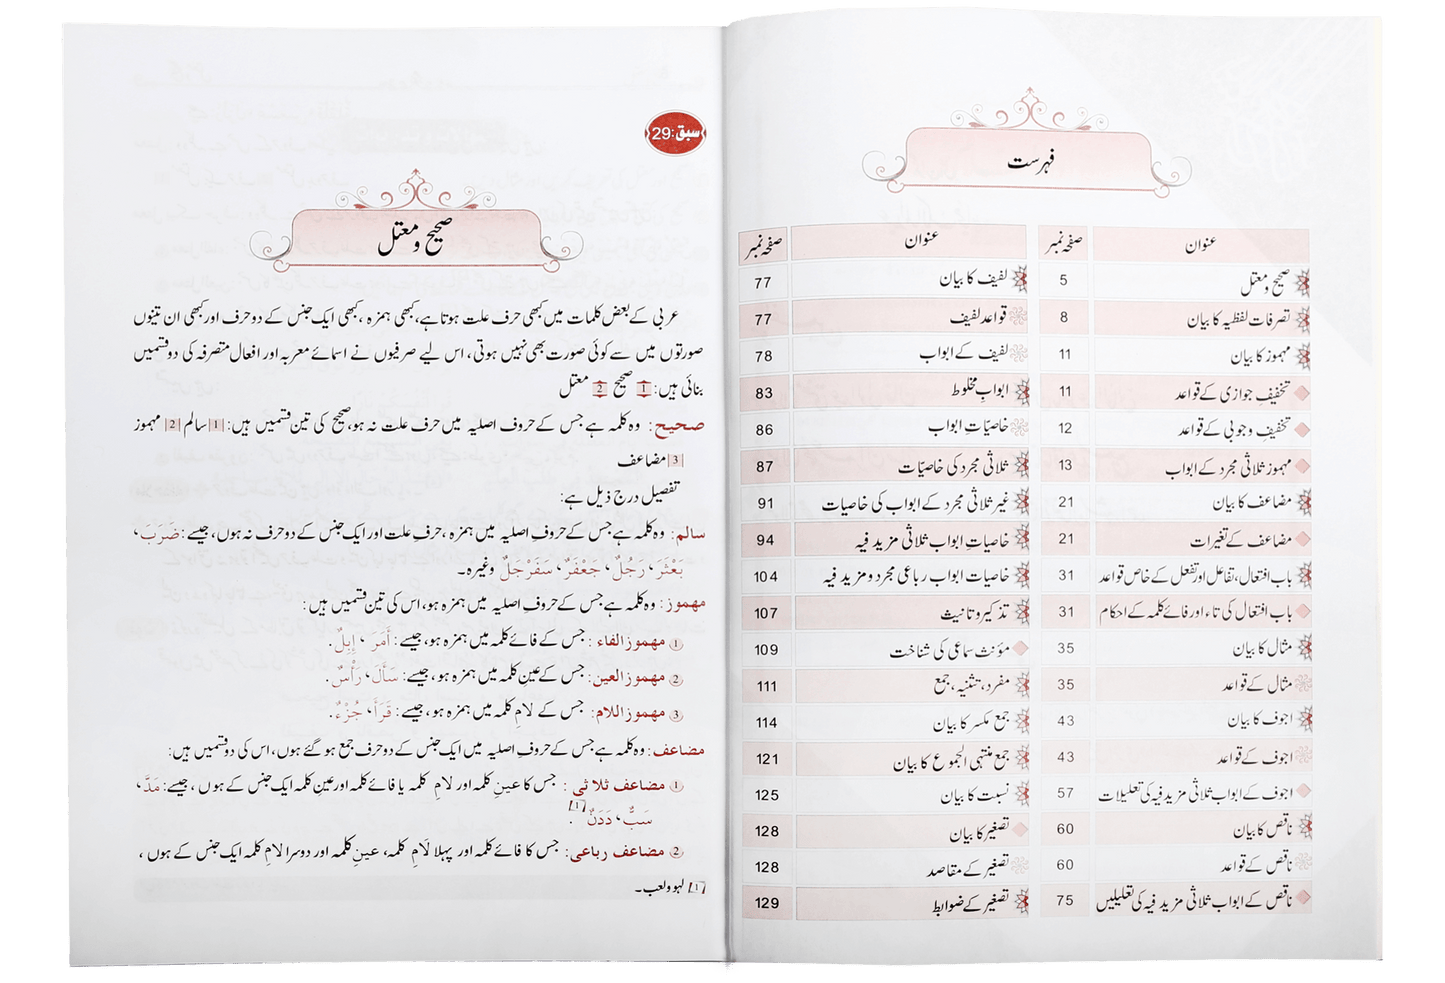 فہرست
عنوان صفحہ نمبر عنوان صفحہ نمبر
صحیح و معتل 5 لفیف کا بیان 77
تصرفات لفظیہ کا بیان 8 قواعد لفیف 77
مہموز کا بیان 11 لفیف کے ابواب 78
تخفیف جوازی کے قواعد 11 ابواب مخلوط 83
تخفیف وجوبی کے قواعد 12 خاصیّات ابواب 86
مہموز ثلاثی مجرد کے ابواب 13 ثلاثی مجرد کی خاصیّات 87
مضاعف کا بیان 21 غیر ثلاثی مجرد کے ابواب کی خاصیات 91
مضاعف کے تغیرات 21 خاصیاتِ ابواب ثلاثی مزید فیہ 94
باب افتعال، تفاعل اور تفعل کے خاص قواعد 31 خاصیات ابواب رباعی مجرد و مزید فیہ 104
باب افتعال کی تاء اور فائے کلمہ کے احکام 31 تذکیر و تانیث 107
مثال کا بیان 35 مؤنث سماعی کی شناخت 109
مثال کے قواعد 35 مفرد، تثنیہ، جمع 111
اجوف کا بیان 43 جمع مکسر کا بیان 114
اجوف کے قواعد 43 جمع منتہی الجموع کا بیان 121
اجوف کے ابواب ثلاثی مزید فیہ کی تعلیلات 57 نسبت کا بیان 125
ناقص کا بیان 60 تصغیر کا بیان 128
ناقص کے قواعد 60 تصغیر کے مقاصد 128
ناقص کے ابواب ثلاثی مزید فیہ کی تعلیلیں 75 تصغیر کے ضوابط 129
سبق: 29
صحیح و معتل
عربی کے بعض کلمات میں کبھی حرف علت ہوتا ہے، کبھی ہمزہ، کبھی ایک جنس کے دو حرف اور کبھی ان تینوں
صورتوں میں سے کوئی صورت بھی نہیں ہوتی، اس لیے صرفیوں نے اسمائے معربہ اور افعال متصرفہ کی دو قسمیں
بنائی ہیں: 1 صحیح 2 معتل
صحیح: وہ کلمہ ہے جس کے حروف اصلیہ میں حرف علت نہ ہو، صحیح کی تین قسمیں ہیں: 1 سالم 2 مہموز
3 مضاعف
تفصیل درج ذیل ہے:
سالم: وہ کلمہ ہے جس کے حروفِ اصلیہ میں ہمزہ، حرفِ علت اور ایک جنس کے دو حرف نہ ہوں، جیسے: ضَرَبَ،
بَعْثَرَ، رَجُلٌ، جَعْفَرٌ، سَفَرْجَلٌ وغیرہ۔
مہموز: وہ کلمہ ہے جس کے حروفِ اصلیہ میں ہمزہ ہو، اس کی تین قسمیں ہیں:
① مهموز الفاء: جس کے فائے کلمہ میں ہمزہ ہو، جیسے: أَمَرَ، إِبِلٌ.
② مهموز العين: جس کے عین کلمہ میں ہمزہ ہو، جیسے: سَأَلَ، رَأْسٌ.
③ مهموز اللام: جس کے لام کلمہ میں ہمزہ ہو، جیسے: قَرَأَ، جُزْءٌ.
مضاعف: وہ کلمہ ہے جس کے حروفِ اصلیہ میں ایک جنس کے دو حرف جمع ہو گئے ہوں، اس کی دو قسمیں ہیں:
① مضاعف ثلاثی: جس کا عینِ کلمہ اور لامِ کلمہ یا فائے کلمہ اور عین کلمہ ایک جنس کے ہوں، جیسے: مَدَّ،
سَبٌّ، دَدَنٌ [1].
② مضاعف رباعی: جس کا فائے کلمہ اور پہلا لامِ کلمہ، عینِ کلمہ اور دوسرا لامِ کلمہ ایک جنس کے ہوں،
[1] لہو و لعب۔